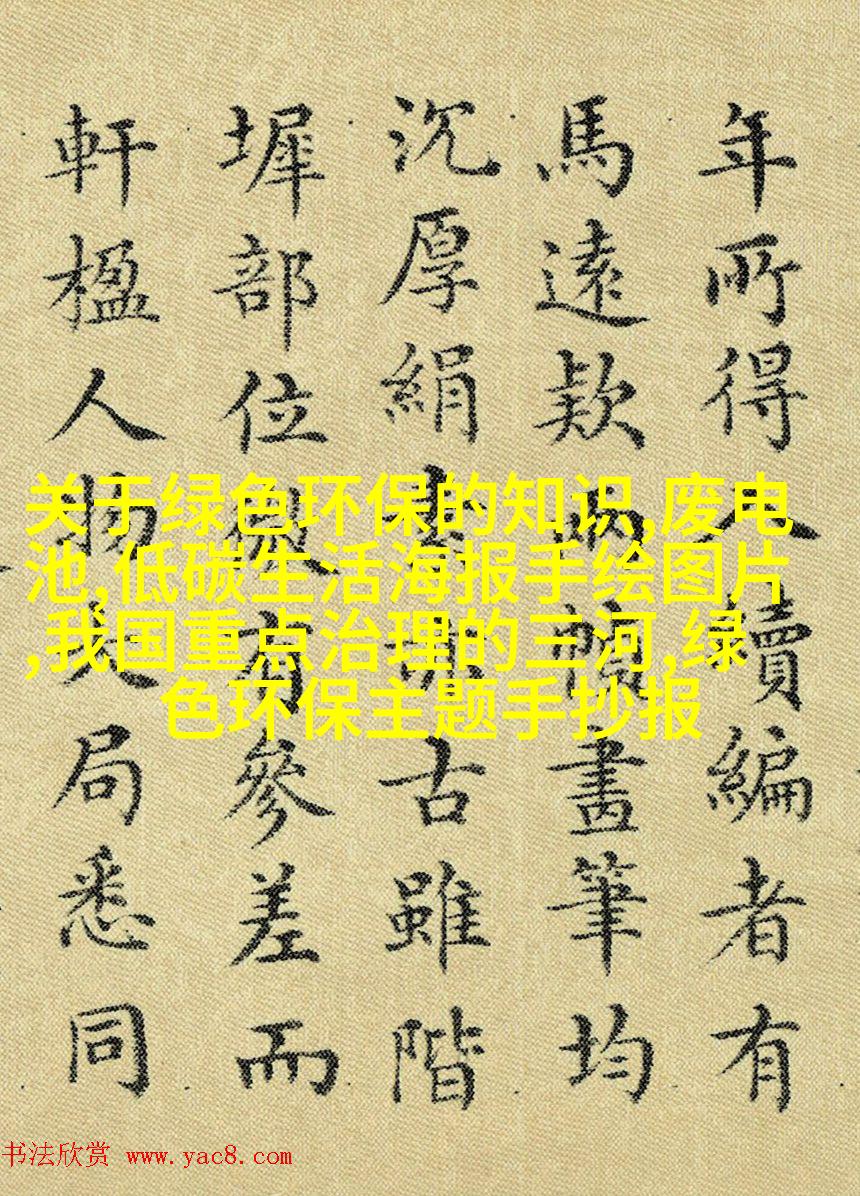 年所得入續編者有
馬遠款兩幀畫筆均
沉厚絹素亦古雖階
墀部位微有參差而
軒楹人物大局悉同
关于绿色环保的知识,废电
池,低碳生活海报手绘图片
,我国重点治理的三河,绿
色环保主题手抄报
书法欣赏 www.yac8.com